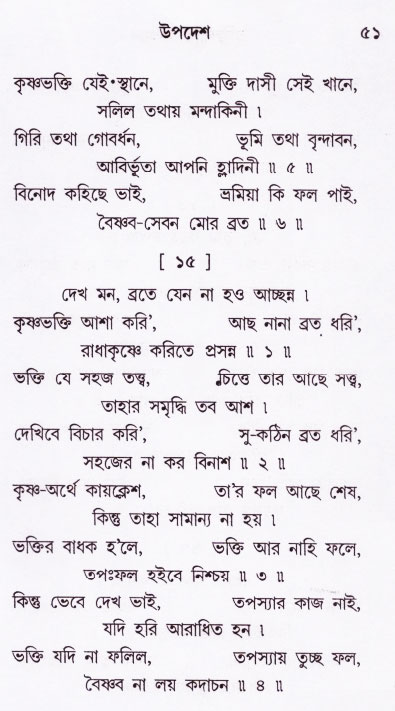 উপদেশ ৫১
কৃষ্ণভক্তি যেই স্থানে, মুক্তি দাসী সেই খানে,
সলিল তথায় মন্দাকিনী ।
গিরি তথা গোবর্ধন, ভূমি তথা বৃন্দাবন,
আবির্ভূতা আপনি হ্লাদিনী ॥ ৫ ॥
বিনোদ কহিছে ভাই, ভ্রমিয়া কি ফল পাই,
বৈষ্ণব-সেবন মোর ব্রত ॥ ৬ ॥
[ ১৫ ]
দেখ মন, ব্রতে যেন না হও আচ্ছন্ন ।
কৃষ্ণভক্তি আশা করি’, আছ নানা ব্রত ধরি’,
রাধাকৃষ্ণে করিতে প্রসন্ন ॥ ১ ॥
ভক্তি যে সহজ তত্ত্ব, চিত্তে তার আছে সত্ত্ব,
তাহার সমৃদ্ধি তব আশ ।
দেখিবে বিচার করি’, সু-কঠিন ব্রত ধরি’,
সহজের না কর বিনাশ ॥ ২ ॥
কৃষ্ণ-অর্থে কায়ক্লেশ, তা’র ফল আছে শেষ,
কিন্তু তাহা সামান্য না হয় ।
ভক্তির বাধক হ’লে, ভক্তি আর নাহি ফলে,
তপঃফল হইবে নিশ্চয় ॥ ৩ ॥
কিন্তু ভেবে দেখ ভাই, তপস্যার কাজ নাই,
যদি হরি আরাধিত হন ।
ভক্তি যদি না ফলিল, তপস্যায় তুচ্ছ ফল,
বৈষ্ণব না লয় কদাচন ॥ ৪ ॥